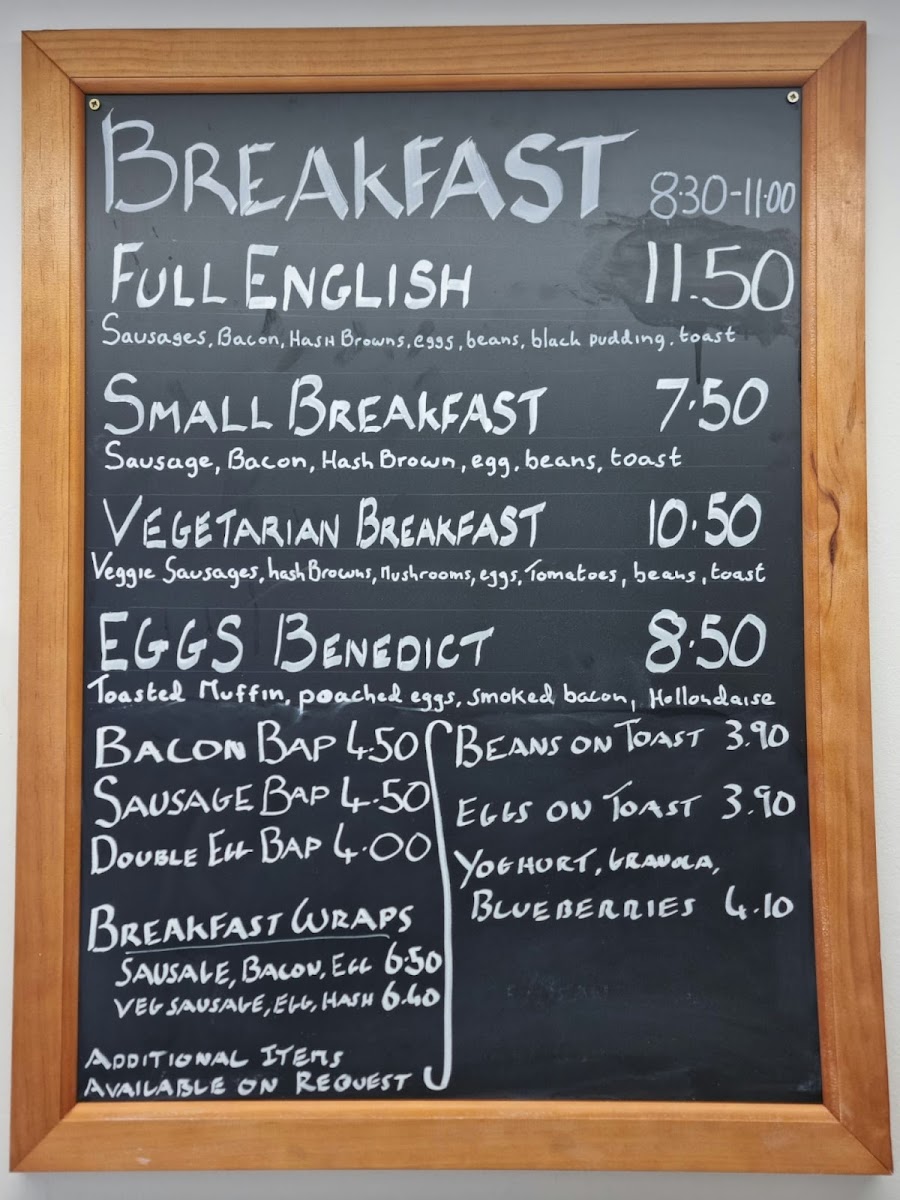 BREAKFAST 8:30-11:00
FULL ENGLISH 11.50
Sausages, Bacon, Hash Browns, eggs, beans, black pudding, toast
SMALL BREAKFAST 7.50
Sausage, Bacon, Hash Brown, egg, beans, toast
VEGETARIAN BREAKFAST 10.50
Veggie Sausages, hash Browns, Mushrooms, eggs, Tomatoes, beans, toast
EGGS BENEDICT 8.50
Toasted Muffin, poached eggs, smoked bacon, Hollondaise
BACON BAP 4.50
SAUSAGE BAP 4.50
DOUBLE EGG BAP 4.00
BREAKFAST WRAPS
SAUSAGE, BACON, EGG 6.50
VEG SAUSAGE, EGG, HASH 6.40
ADDITIONAL ITEMS
AVAILABLE ON REQUEST
BEANS ON TOAST 3.90
EGGS ON TOAST 3.90
YOGHURT, GRANOLA,
BLUEBERRIES 4.10